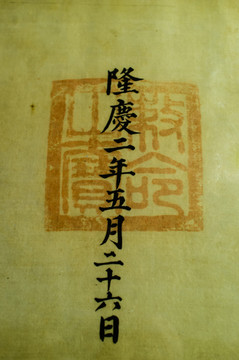 隆慶二年五月二十六日
敕命
之寶